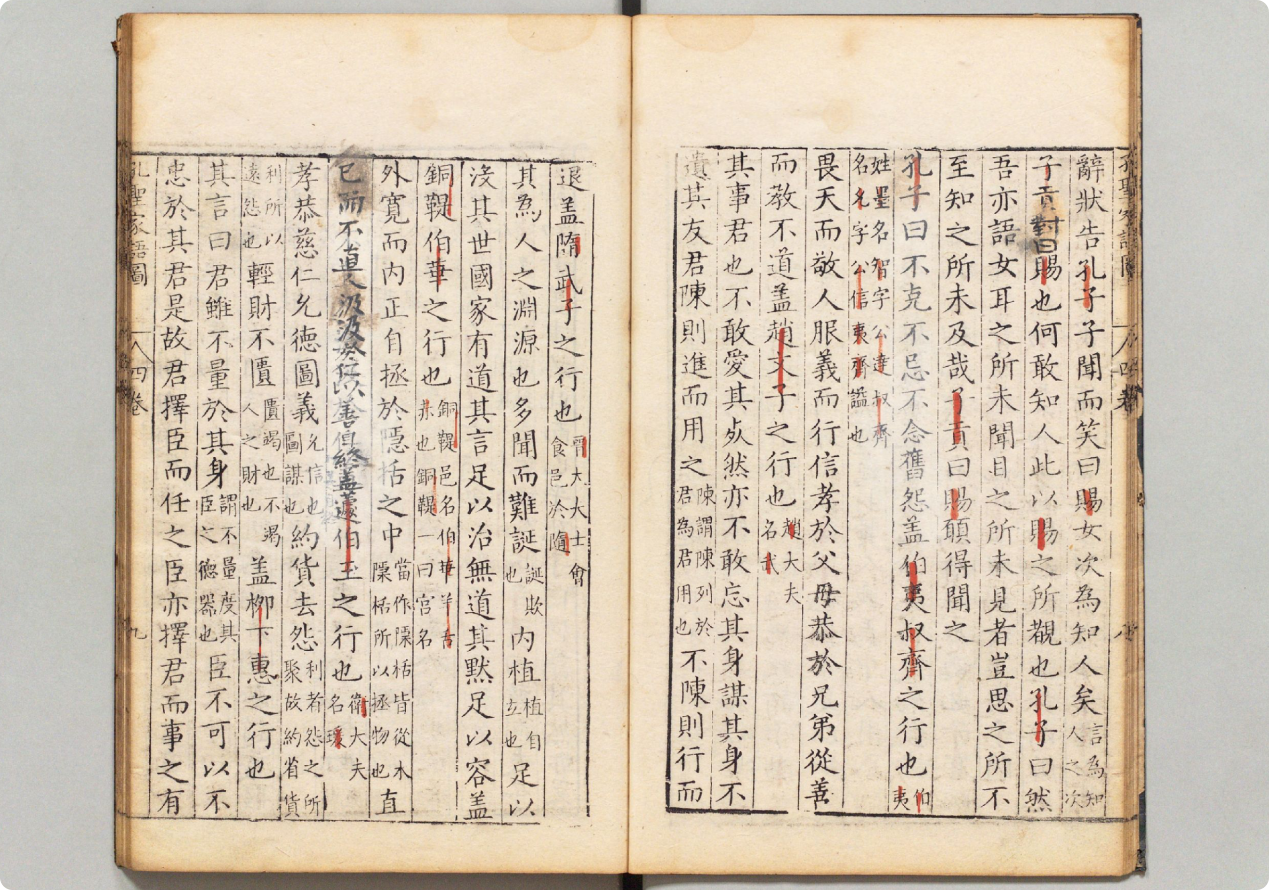 辭狀告孔子子聞而笑曰賜女次為知人矣言為知人之次
子貢對曰賜也何敢知人此以賜之所觀也孔子曰然
吾亦語女耳之所未聞目之所未見者豈思之所不
至知之所未及哉子貢曰賜願得聞之
孔子曰不克不忌不念舊怨盖伯夷叔齊之行也伯夷
姓墨名智字公達叔齊名名字公信夷齊謚也
畏天而敬人服義而行信孝於父母恭於兄弟從善
而教不道盖趙文子之行也趙大夫名武
其事君也不敢愛其死然亦不敢忘其身謀其身不
遺其友君陳則進而用之陳謂陳列於君為君用也不陳則行而
孔聖家語圖 八四卷 八
退盖隋武子之行也晋大夫士會食邑於隨
其為人之淵源也多聞而難誕誕欺也内植植自立也足以
沒其世國家有道其言足以治無道其黙足以容盖
銅鞮伯華之行也銅鞮邑名伯華羊舌赤也銅鞮一曰宫名
外寛而内正自拯於隱括之中當作隱栝皆從木隱栝所以拯物也直
已而不直人汲汲於仁以善自終盖蘧伯玉之行也衛大夫名瑗
孝恭慈仁允德圖義允信也圖謀也約貨去怨利者怨之所聚故約省貨
利所以遠怨也輕財不匱匱竭也不竭人之財也盖柳下惠之行也
其言曰君雖不量於其身謂不量度其臣之德器也臣不可以不
忠於其君是故君擇臣而任之臣亦擇君而事之有
孔聖家語圖 八四卷 九